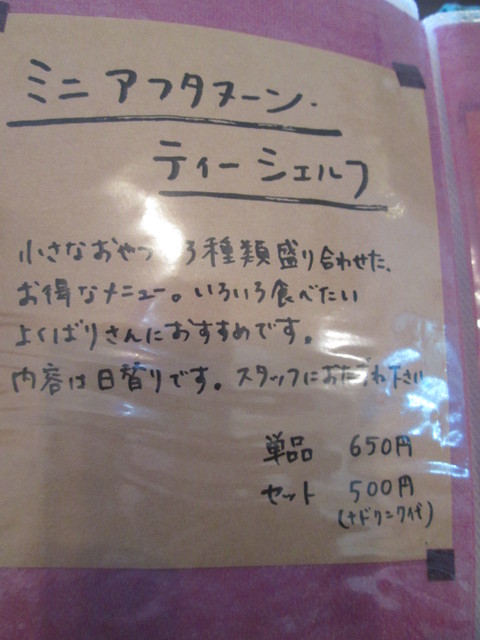 ミニアフタヌーン・
ティーシェルフ
小さなおやつ 3種類盛り合わせた、
お得なメニュー。いろいろ食べたい
よくばりさんにおすすめです。
内容は日替りです。スタッフにおたずね下さい
単品 650円
セット 500円
(+ドリンク代)